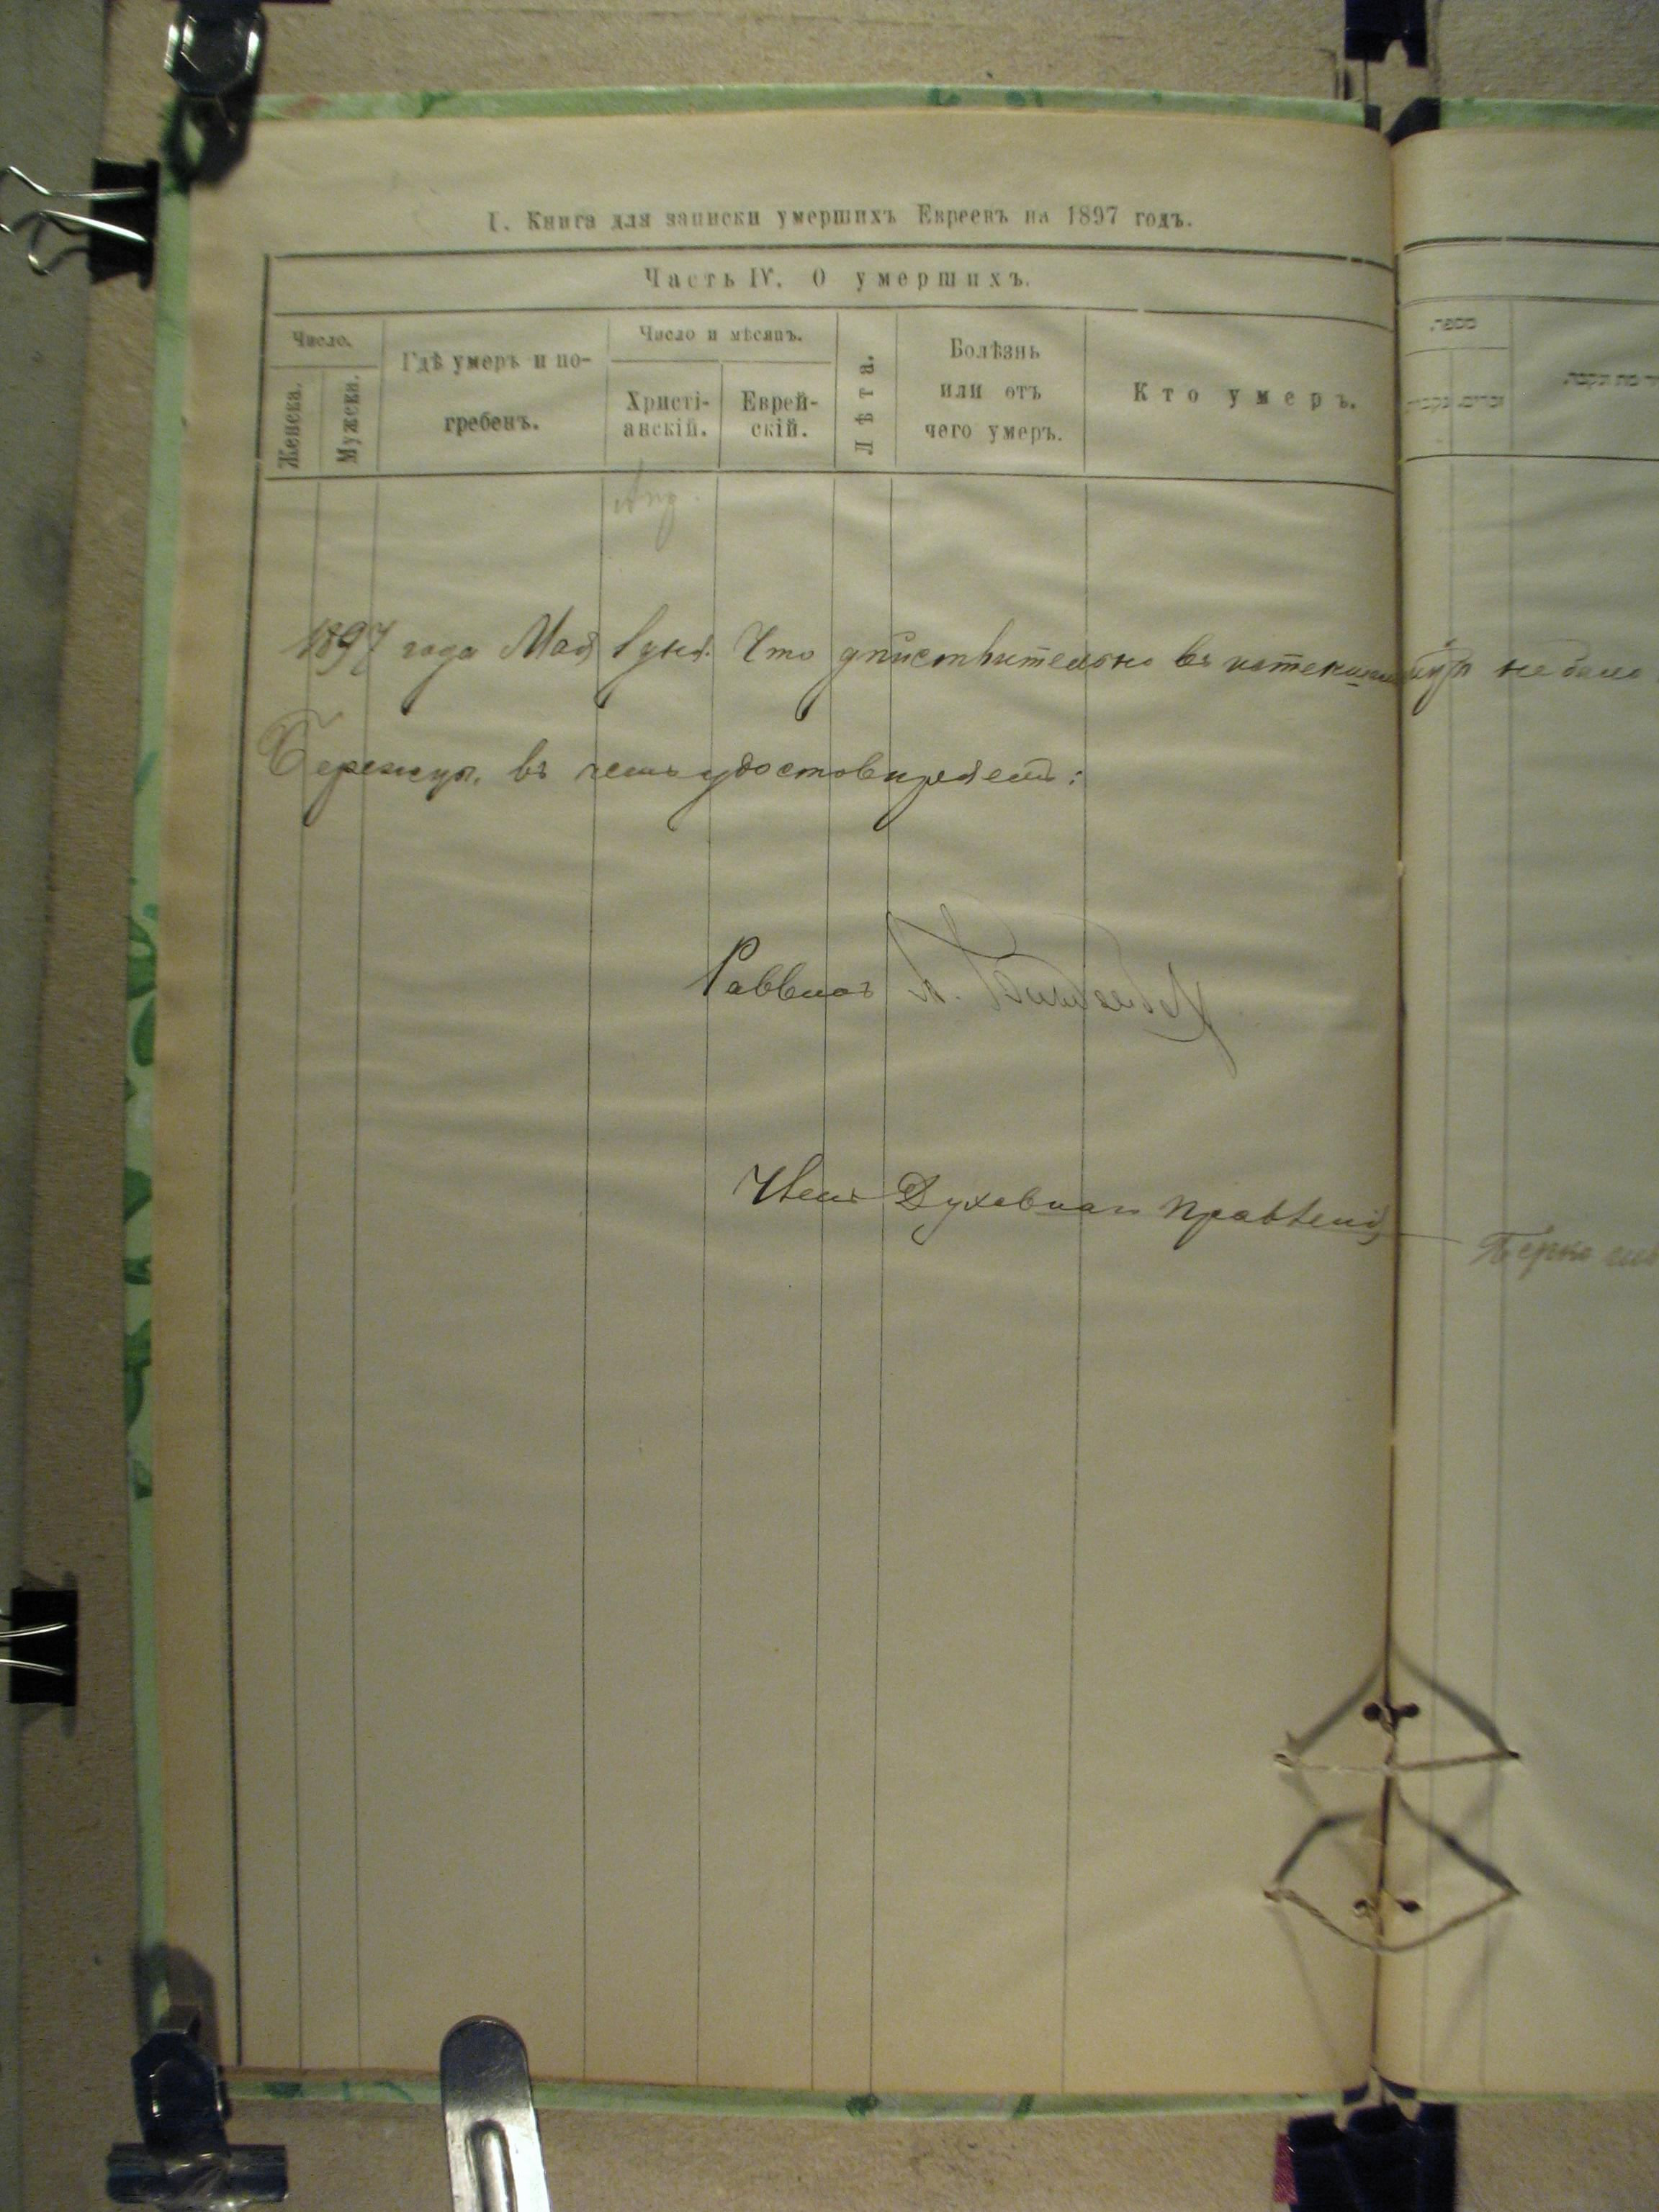 I. Книга для записки умершихъ Евреевъ на 1897 годъ.
Часть IV. О умершихъ.
Число.
Женска.
Мужска.
Гдѣ умеръ и по-
гребенъ.
Число и мѣсяцъ.
Христі-
анскій.
Еврей-
скій.
Лѣта.
Болѣзнь
или отъ
чего умеръ.
Кто умеръ.
מספר.
Апр.
1897 года Мая 1 дня. Что дѣйствительно въ истекшемъ не было
въ чемъ удостовѣряетъ:
Раввинъ
Членъ Духовнаго Правленія
Берко